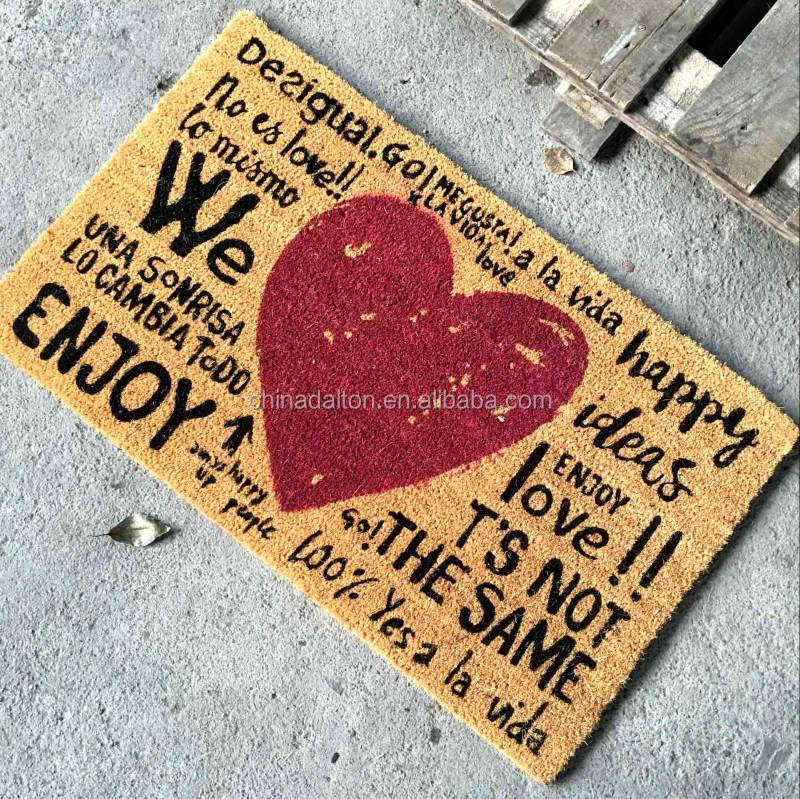 Desigual. GO!
No es love!!
lo mismo
We
UNA SONRISA
LO CAMBIA TODO
ENJOY
ME GUSTA!
LA VIDA
love
a la vida
happy
ideas
ENJOY
love!!
T'S NOT
Go! THE SAME
100% Yes a la vida
happy
up people
chinadalton.en.alibaba.com